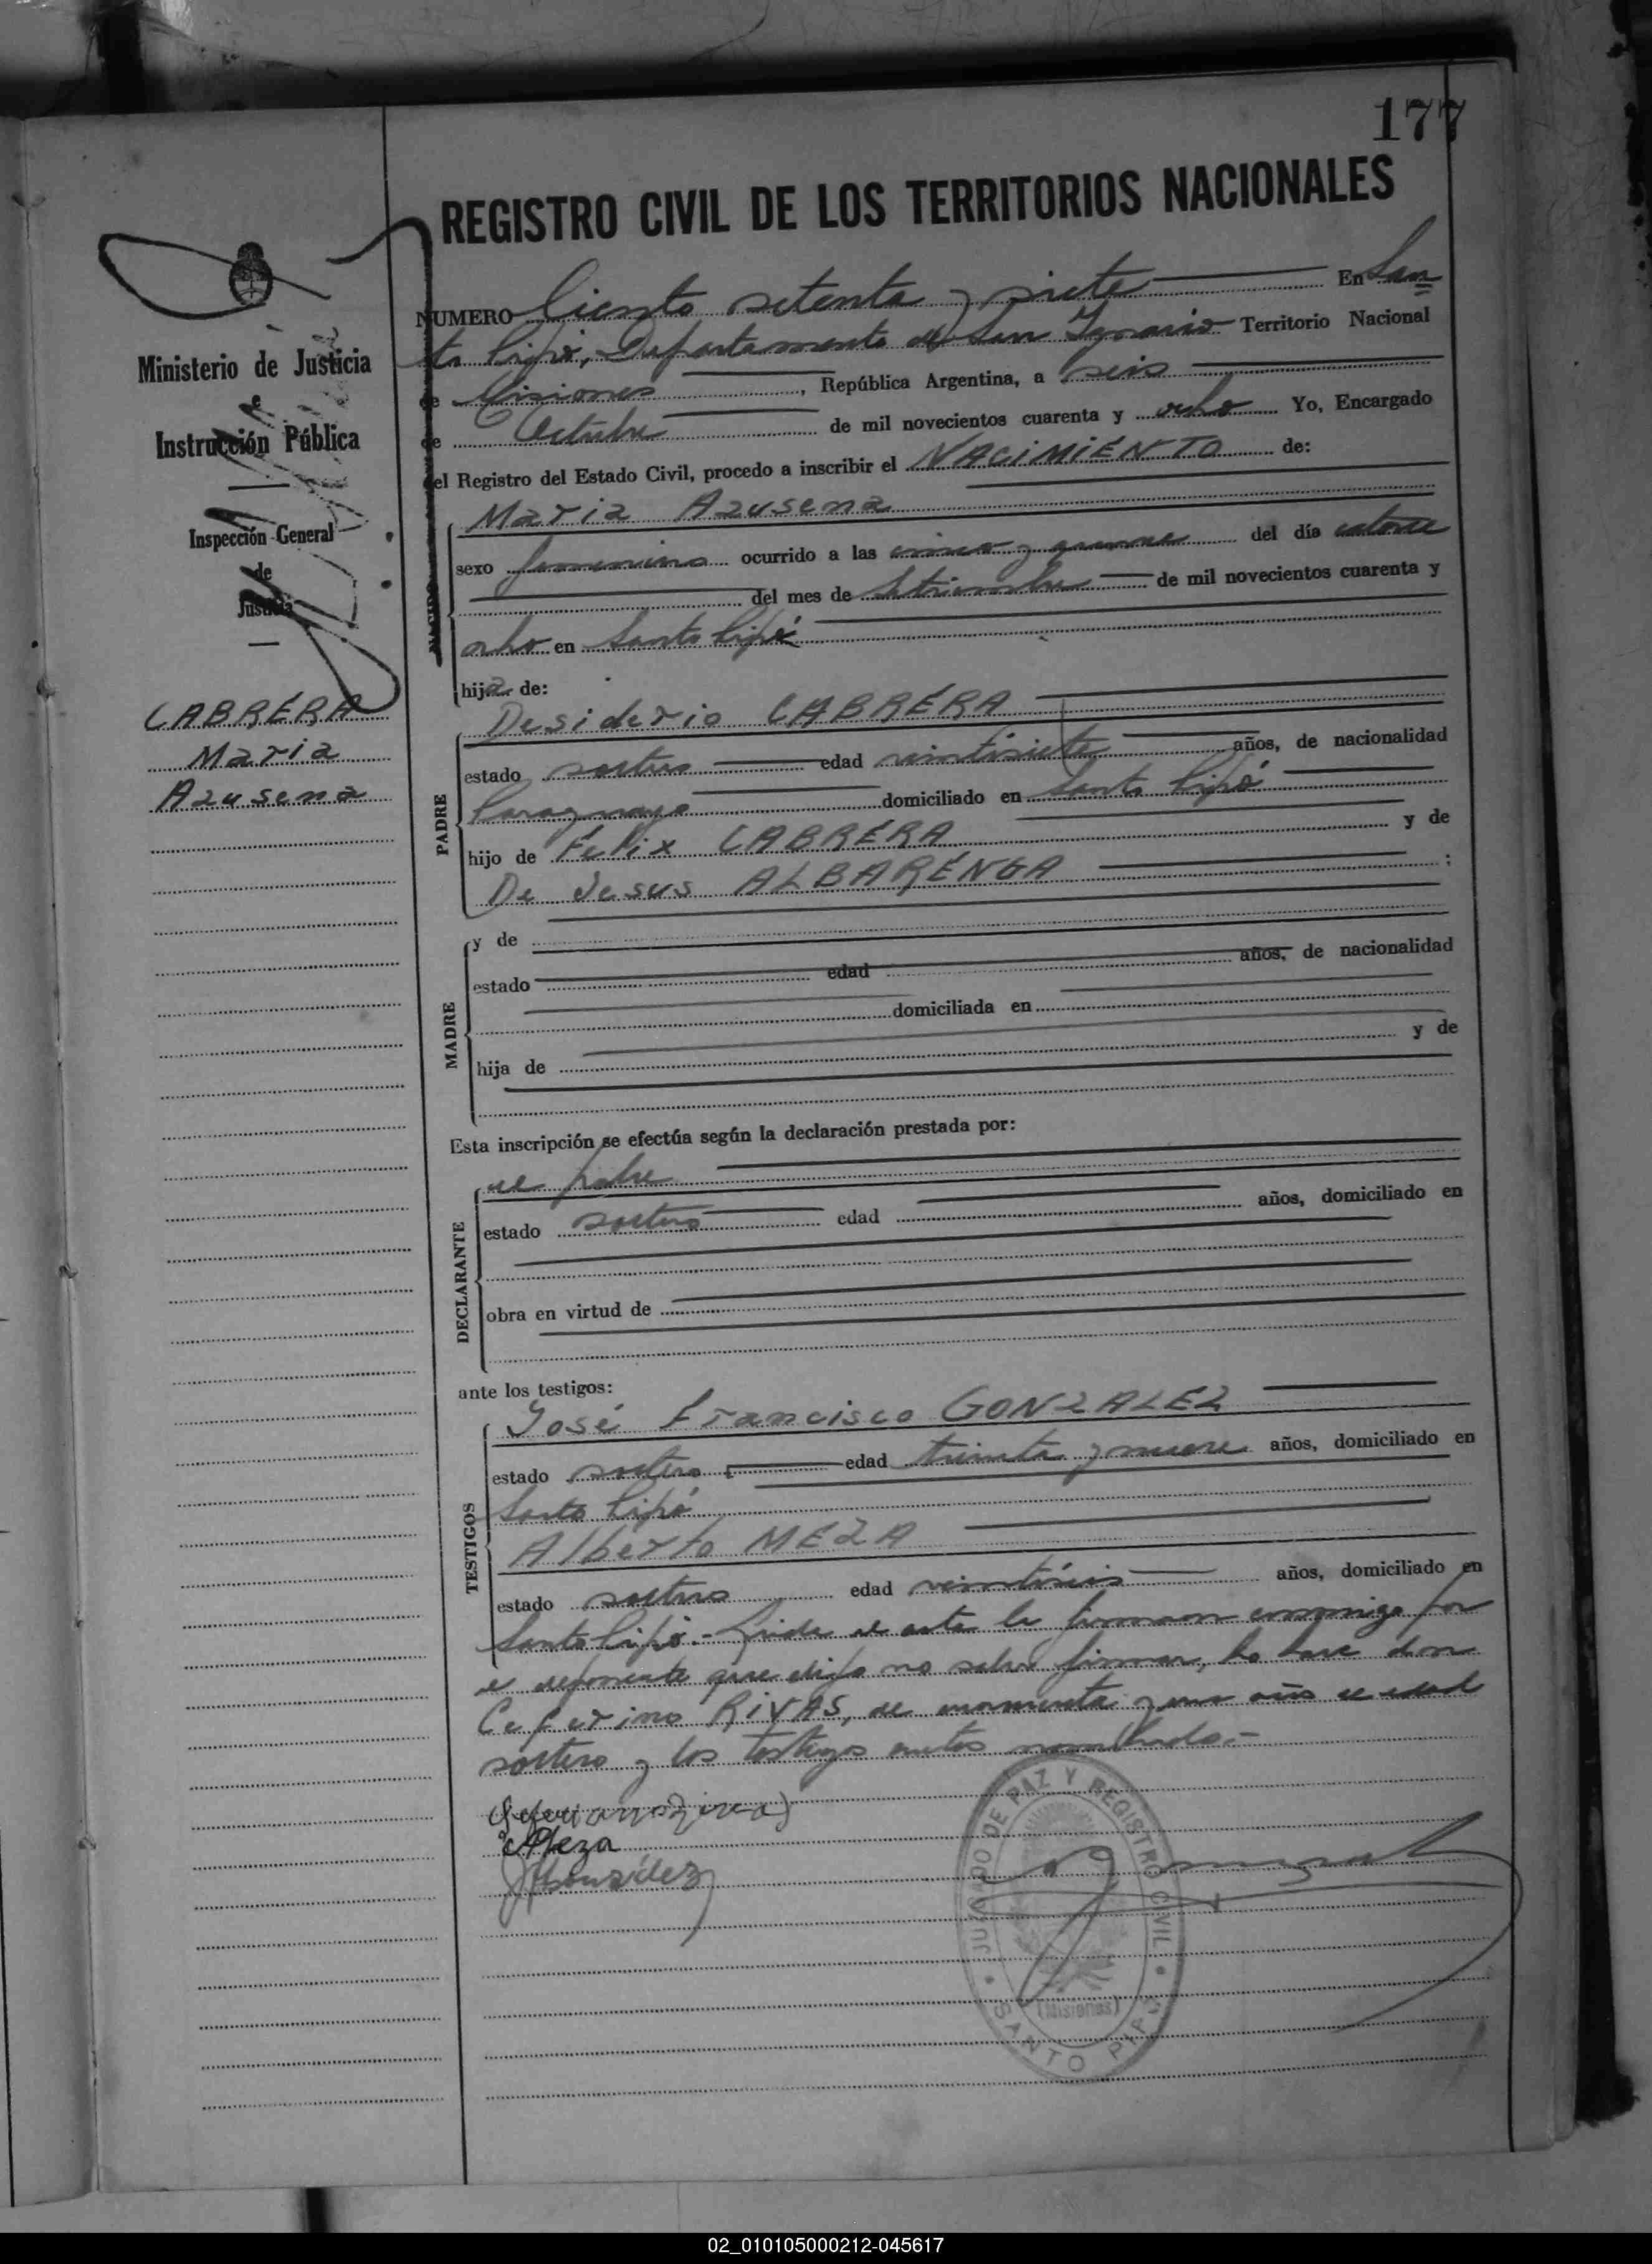 177
REGISTRO CIVIL DE LOS TERRITORIOS NACIONALES
NUMERO Ciento setenta y siete En San
to Pipó, Departamento de San Ignacio Territorio Nacional
de Misiones, República Argentina, a seis
de Octubre de mil novecientos cuarenta y ocho Yo, Encargado
del Registro del Estado Civil, procedo a inscribir el NACIMIENTO de:
Maria Azusena
sexo femenino ocurrido a las cinco y del día catorce
del mes de Setiembre de mil novecientos cuarenta y
ocho en Santo Pipó
hija de:
Ministerio de Justicia
e
Instrucción Pública
Inspección General
de
Justicia
CABRERA
Maria
Azusena
PADRE
Desiderio CABRERA
estado soltero edad veintisiete años, de nacionalidad
Paraguaya domiciliado en Santo Pipó
hijo de Félix CABRERA y de
De Jesus ALBARENGA ;
MADRE
y de
estado edad años, de nacionalidad
domiciliada en
hija de y de
Esta inscripción se efectúa según la declaración prestada por:
DECLARANTE
el padre
estado soltero edad años, domiciliado en
obra en virtud de
ante los testigos:
TESTIGOS
José Francisco GONZALEZ
estado soltero edad treinta y nueve años, domiciliado en
Santo Pipó
Alberto MEZA
estado soltero edad veintiseis años, domiciliado en
Santo Pipó.- Leida el acta la firman conmigo por
el deponente que dijo no saber firmar, lo hace don
Ceferino RIVAS, de y un años de edad
soltero y los testigos antes nombrados.-
Meza
JFGonzález
JUZGADO DE PAZ Y REGISTRO CIVIL
(Misiones)
SANTO PIPÓ
02_010105000212-045617